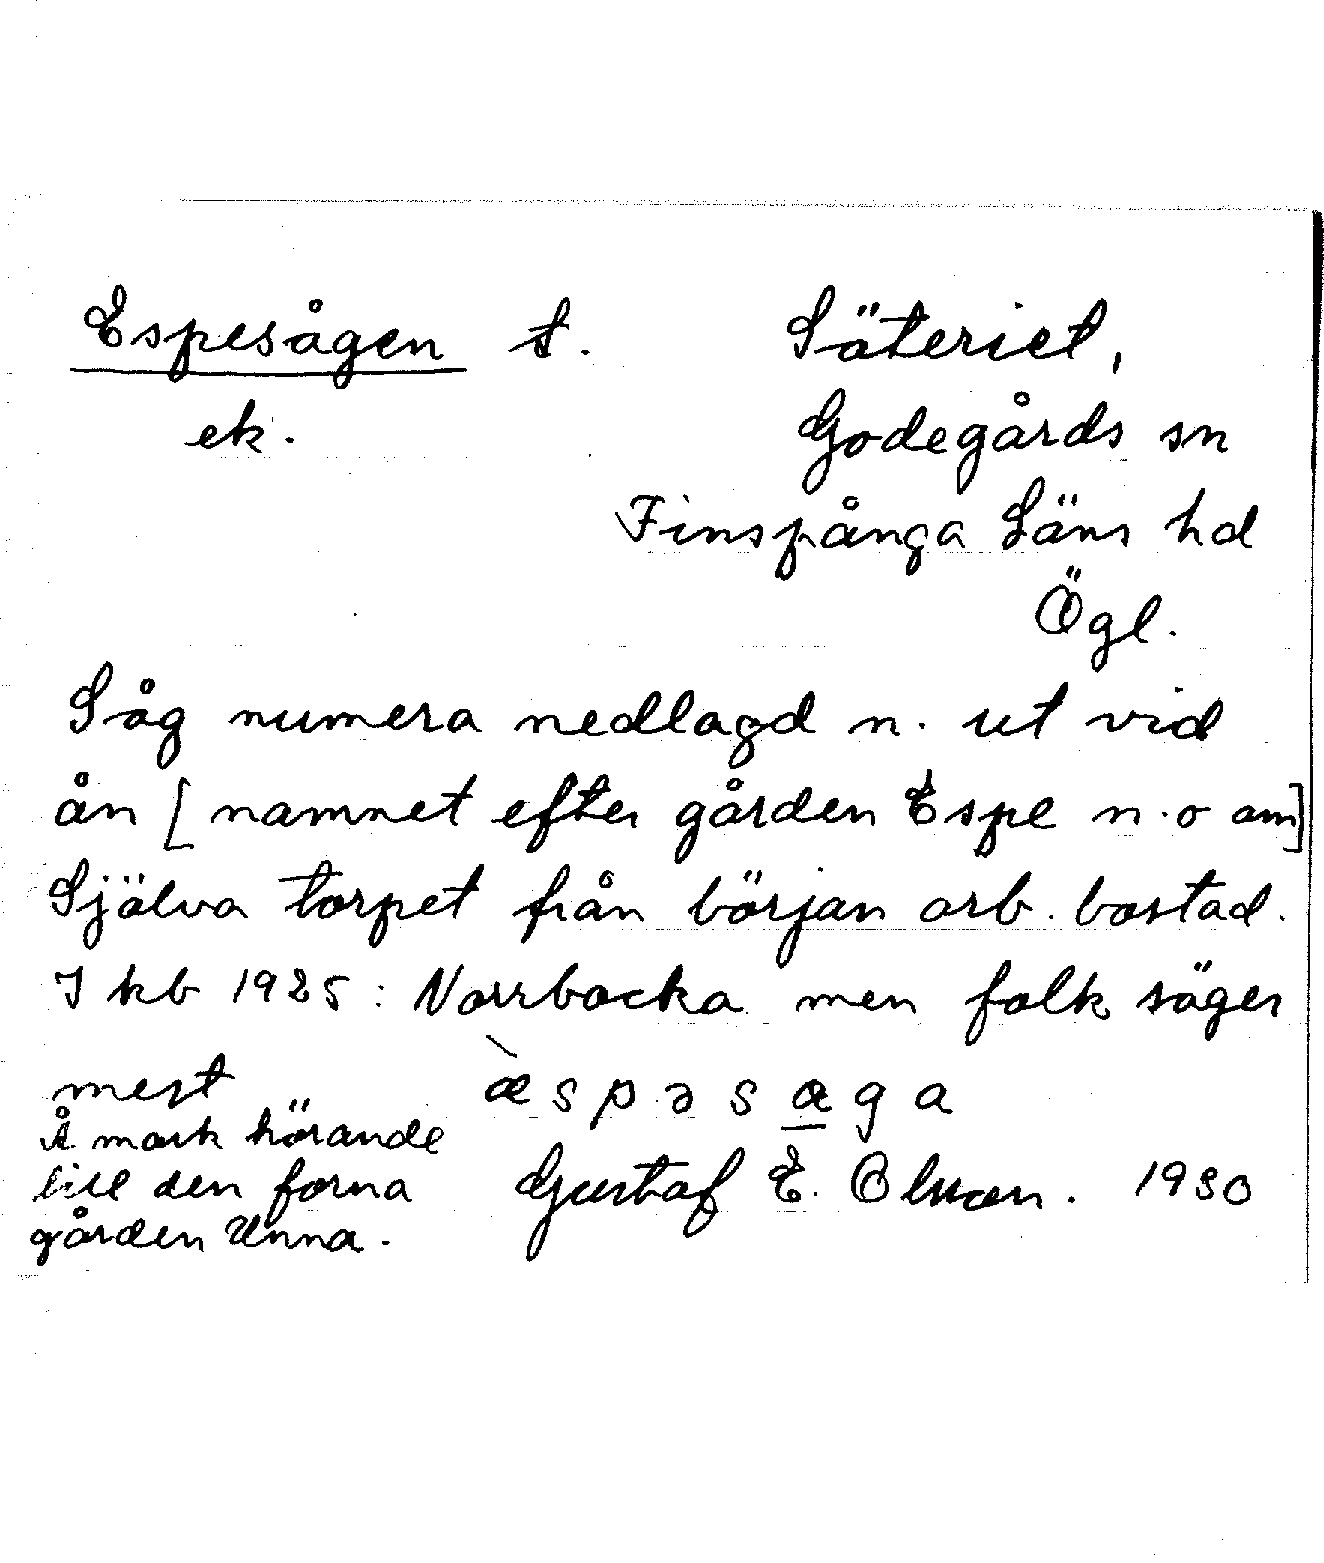 Espesågen t. Säteriet,
ek. Godegårds sn
Finspånga Läns hd
Ögl.
Såg numera nedlagd n. ut vid
ån [namnet efter gården Espe n.o om]
Själva torpet från början arb. bostad.
I kb 1925: Norrbocka men folk säger
mest æ̀spəsaga
Å mark hörande
till den forna
gården Unna.
Gustaf E. Olsson. 1930